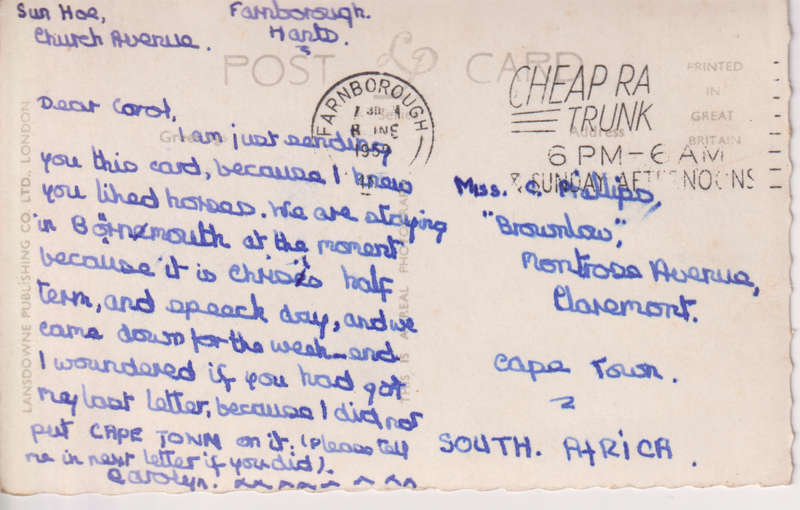 Sun Hoe, Farnborough.
Church Avenue. Hants.
POST LP CARD
PRINTED
IN
GREAT
BRITAIN
Address
FARNBOROUGH
1959
CHEAP RA
TRUNK
6 PM-6 AM
& SUNDAY AFTERNOONS
LANSDOWNE PUBLISHING CO. LTD., LONDON
THIS IS A REAL PHOTOGRAPH
Dear Carol,
I am just sending
you this card, because I knew
you liked horses. We are staying
in Bornemouth at the moment
because it is Chris's half
term, and speach day, and we
came down for the week-end
I woundered if you had got
my last letter, because I did not
put CAPE TOWN on it. (Please tell
me in next letter if you did).
Carolyn.
Miss. C. Phillips,
"Brownlow",
Montrose Avenue,
Claremont.
Cape Town.
SOUTH. AFRICA.